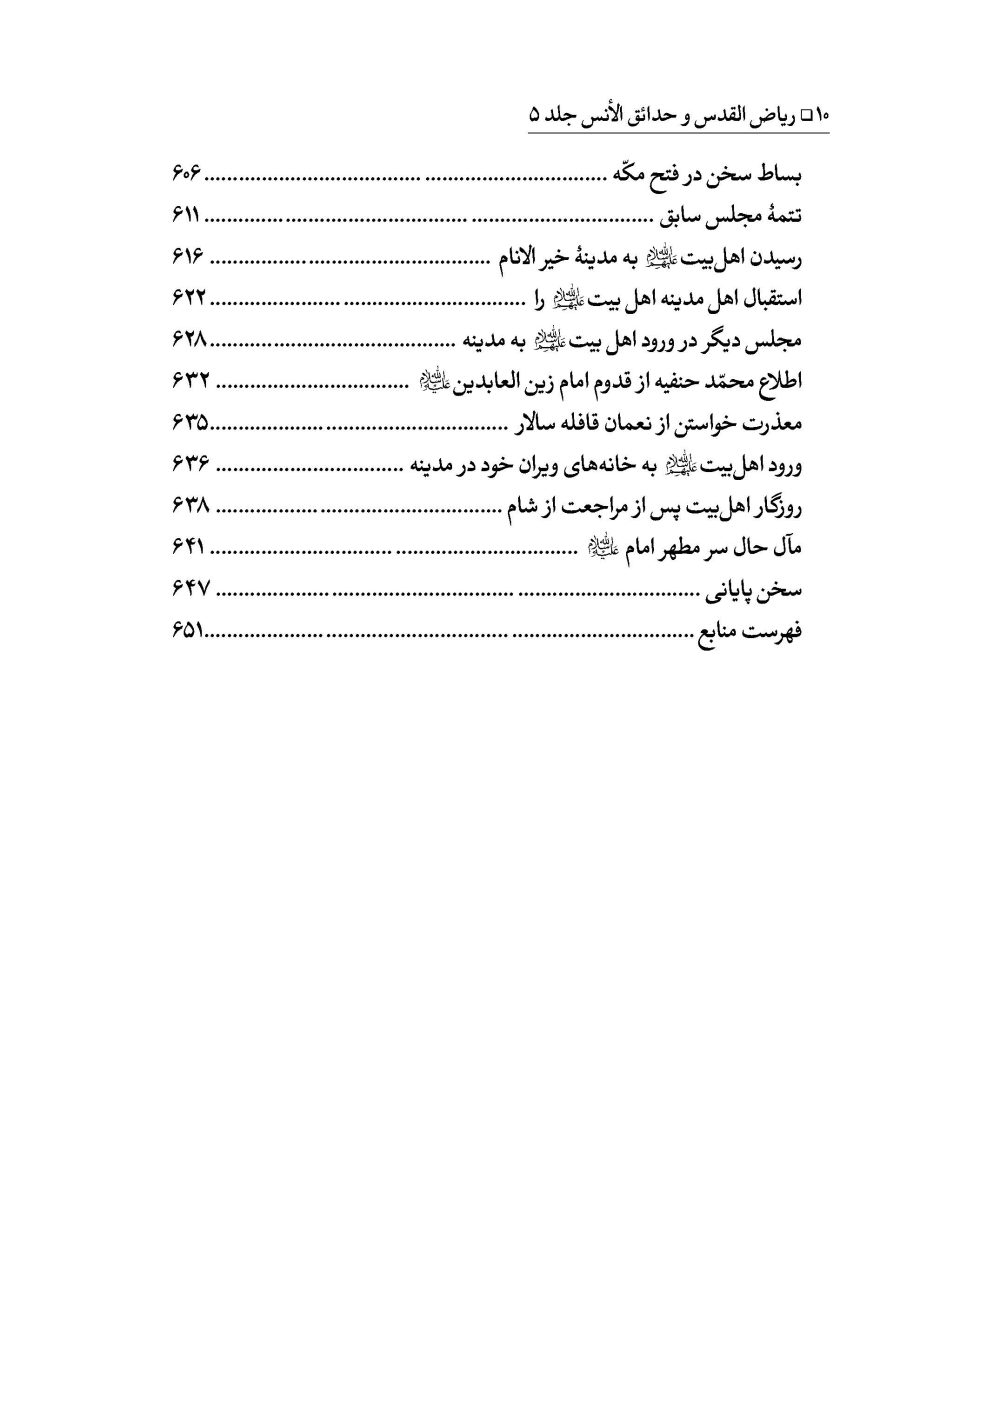 ۱۰ ❏ ریاض القدس و حدائق الأنس جلد ۵
بساط سخن در فتح مکّه ................................................................ ۶۰۶
تتمهٔ مجلس سابق ................................................................ ۶۱۱
رسیدن اهل‌بیت علیهم‌السلام به مدینهٔ خیر الانام ................................................ ۶۱۶
استقبال اهل مدینه اهل بیت علیهم‌السلام را ................................................ ۶۲۲
مجلس دیگر در ورود اهل بیت علیهم‌السلام به مدینه ........................................ ۶۲۸
اطلاع محمّد حنفیه از قدوم امام زین العابدین علیه‌السلام ................................ ۶۳۲
معذرت خواستن از نعمان قافله سالار ................................................ ۶۳۵
ورود اهل‌بیت علیهم‌السلام به خانه‌های ویران خود در مدینه ................................ ۶۳۶
روزگار اهل‌بیت پس از مراجعت از شام ................................................ ۶۳۸
مآل حال سر مطهر امام علیه‌السلام ................................................................ ۶۴۱
سخن پایانی ................................................................................ ۶۴۷
فهرست منابع ................................................................................ ۶۵۱